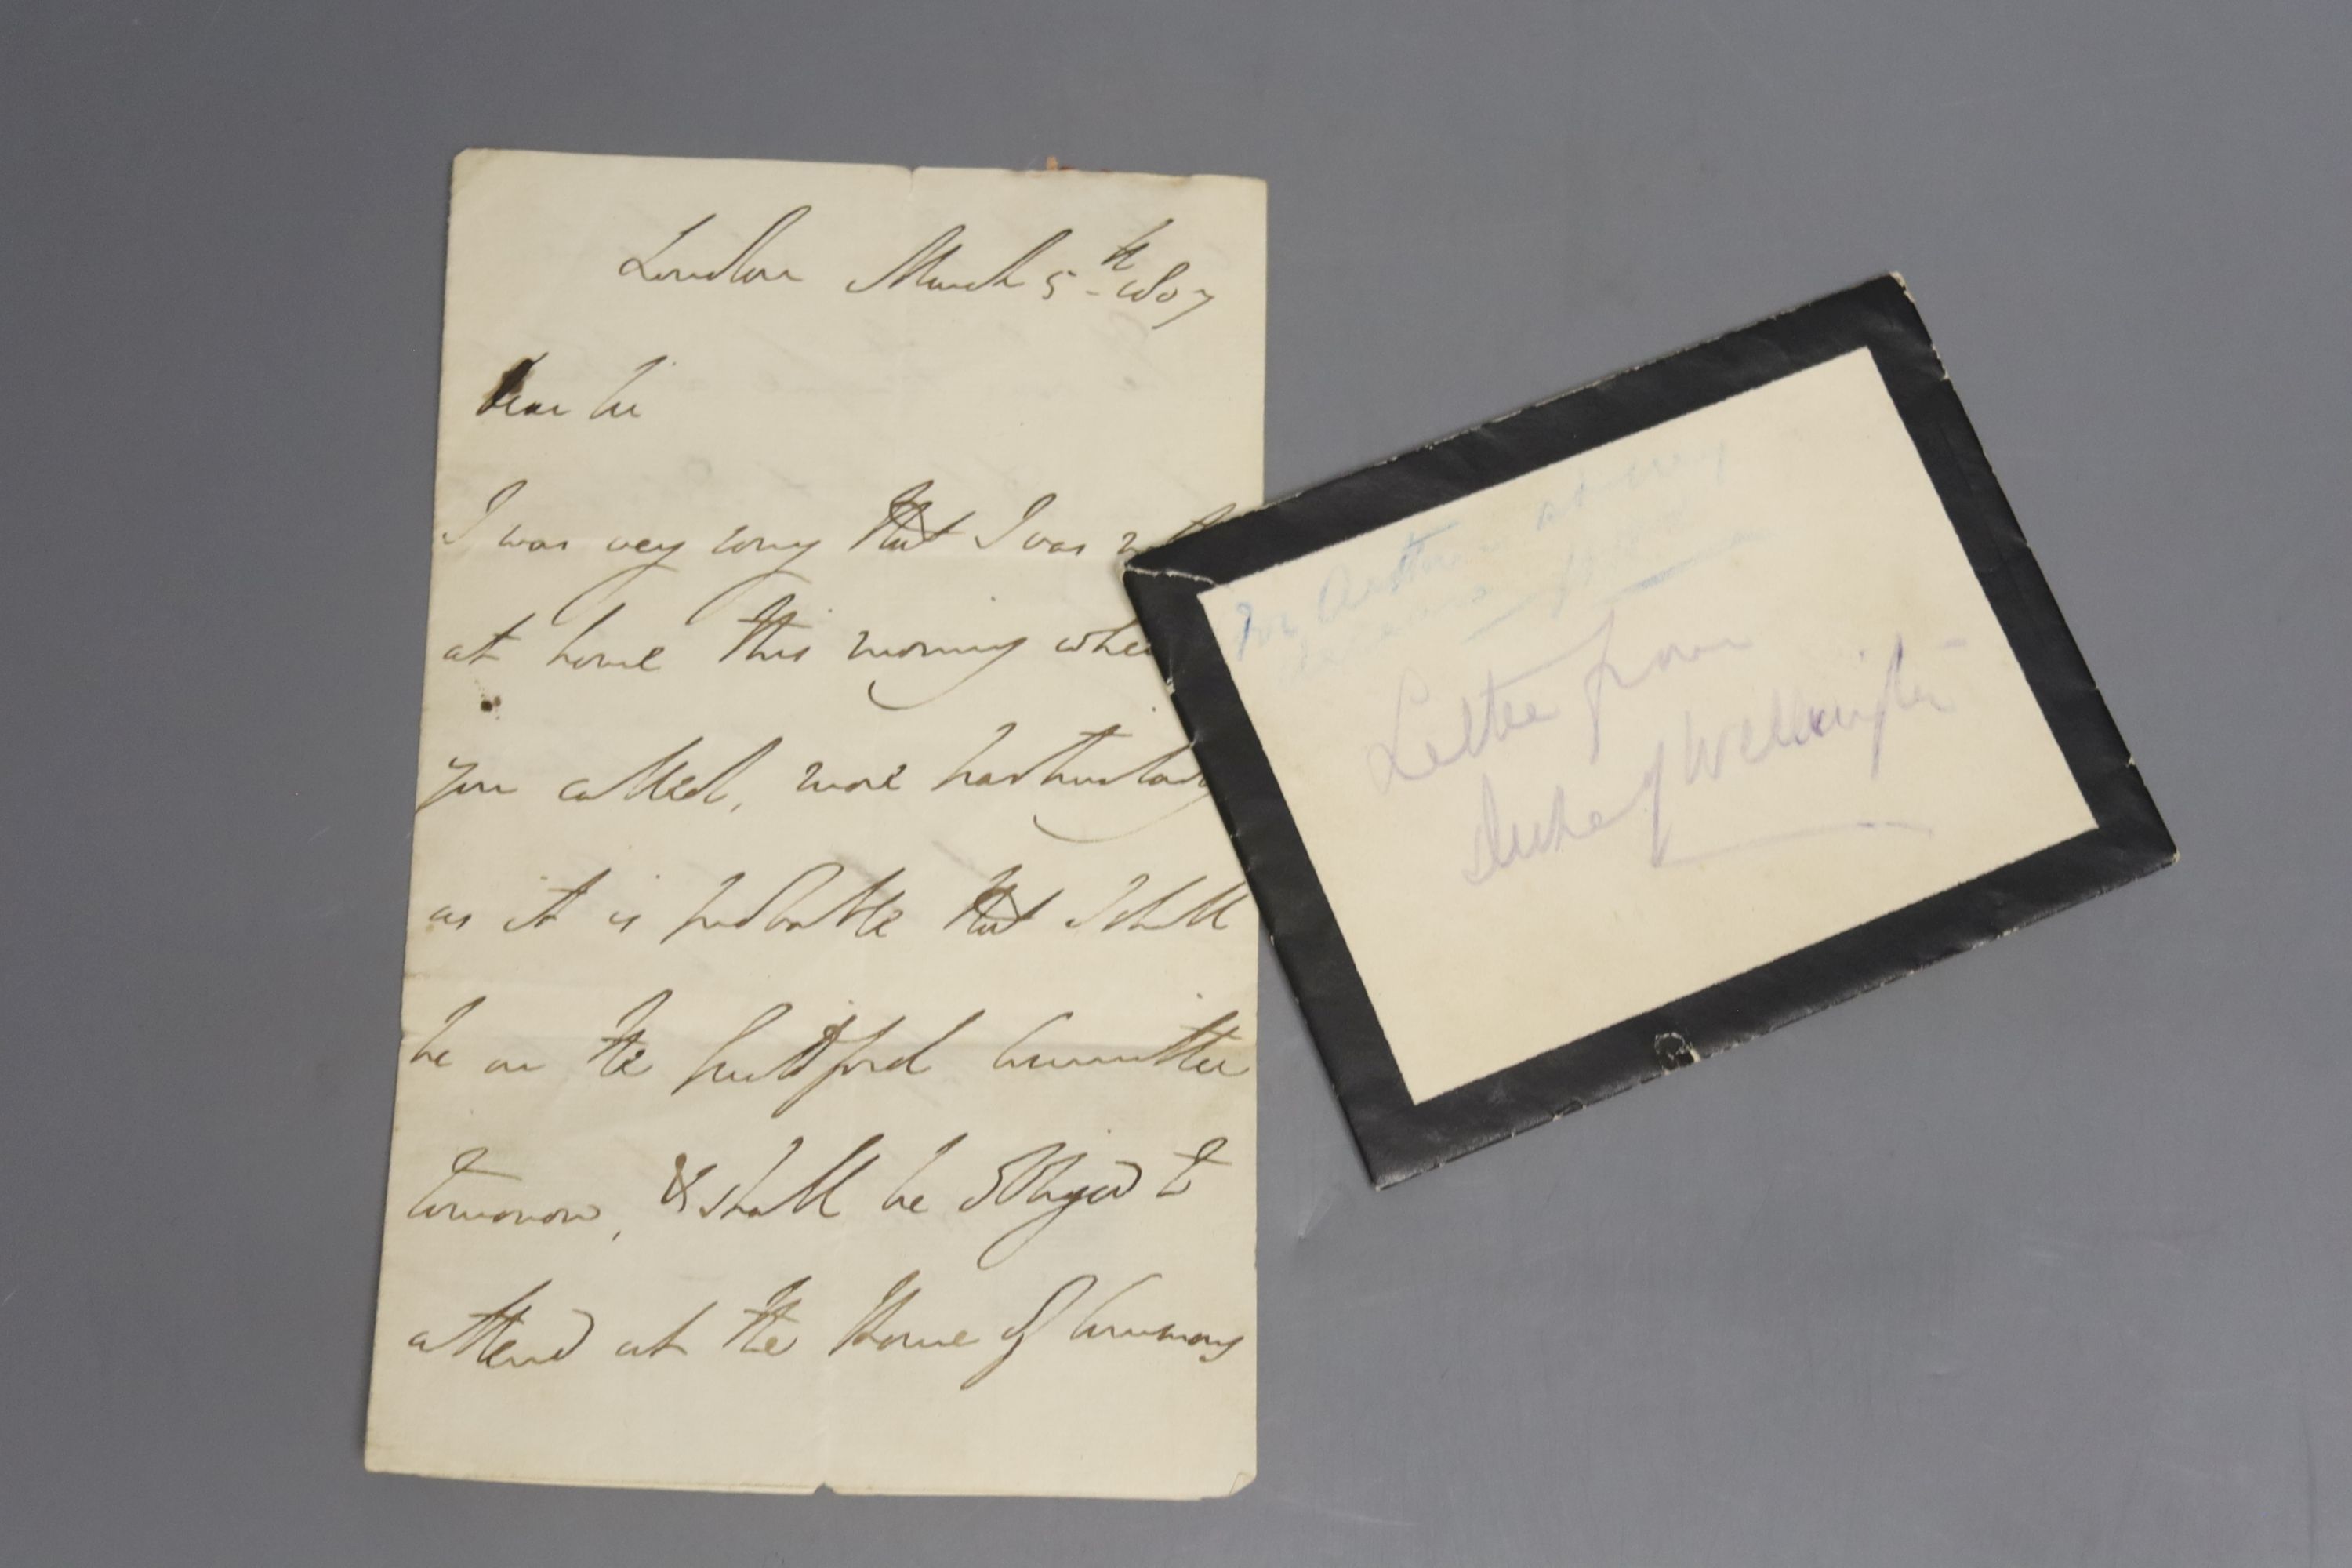 London March 5th 1807
Dear Sir
I was very sorry that I was not
at home this morning when
you called, more particularly
as it is probable that I shall
be on the Guildford Committee
tomorrow, & shall be obliged to
attend at the House of Commons
Letter from
Duke of Wellington